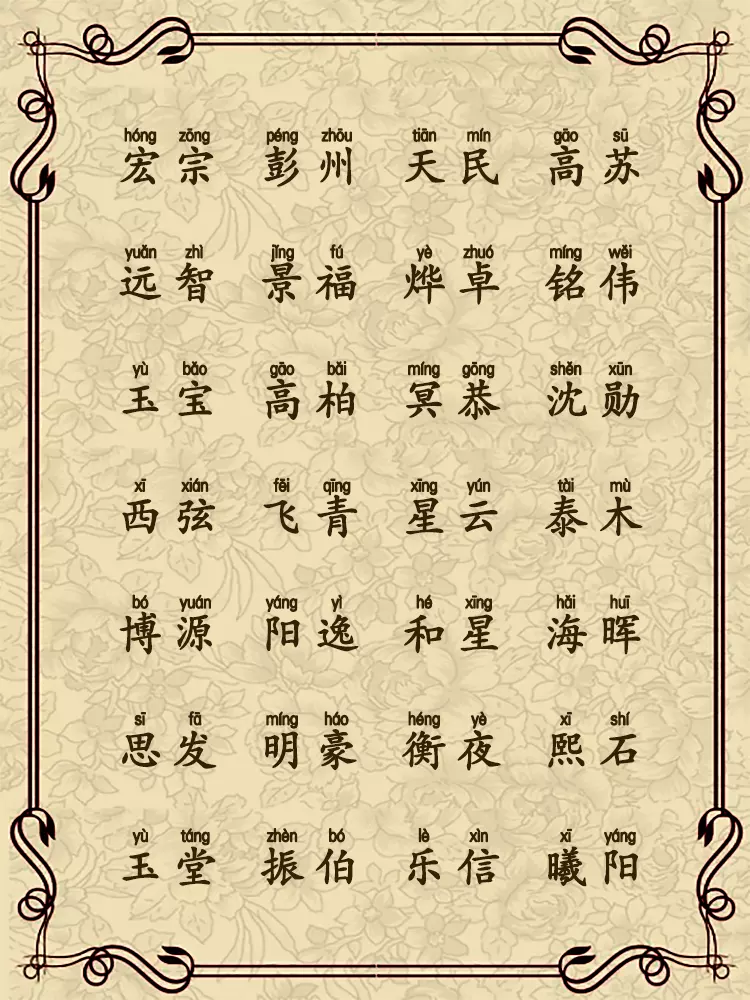 hóng zōng péng zhōu tiān mín gāo sū
宏宗 彭州 天民 高苏
yuǎn zhì jǐng fú yè zhuó míng wěi
远智 景福 烨卓 铭伟
yù bǎo gāo bǎi míng gōng shěn xūn
玉宝 高柏 冥恭 沈勋
xī xián fēi qīng xīng yún tài mù
西弦 飞青 星云 泰木
bó yuán yáng yì hé xīng hǎi huī
博源 阳逸 和星 海晖
sī fā míng háo héng yè xī shí
思发 明豪 衡夜 熙石
yù táng zhèn bó lè xìn xī yáng
玉堂 振伯 乐信 曦阳